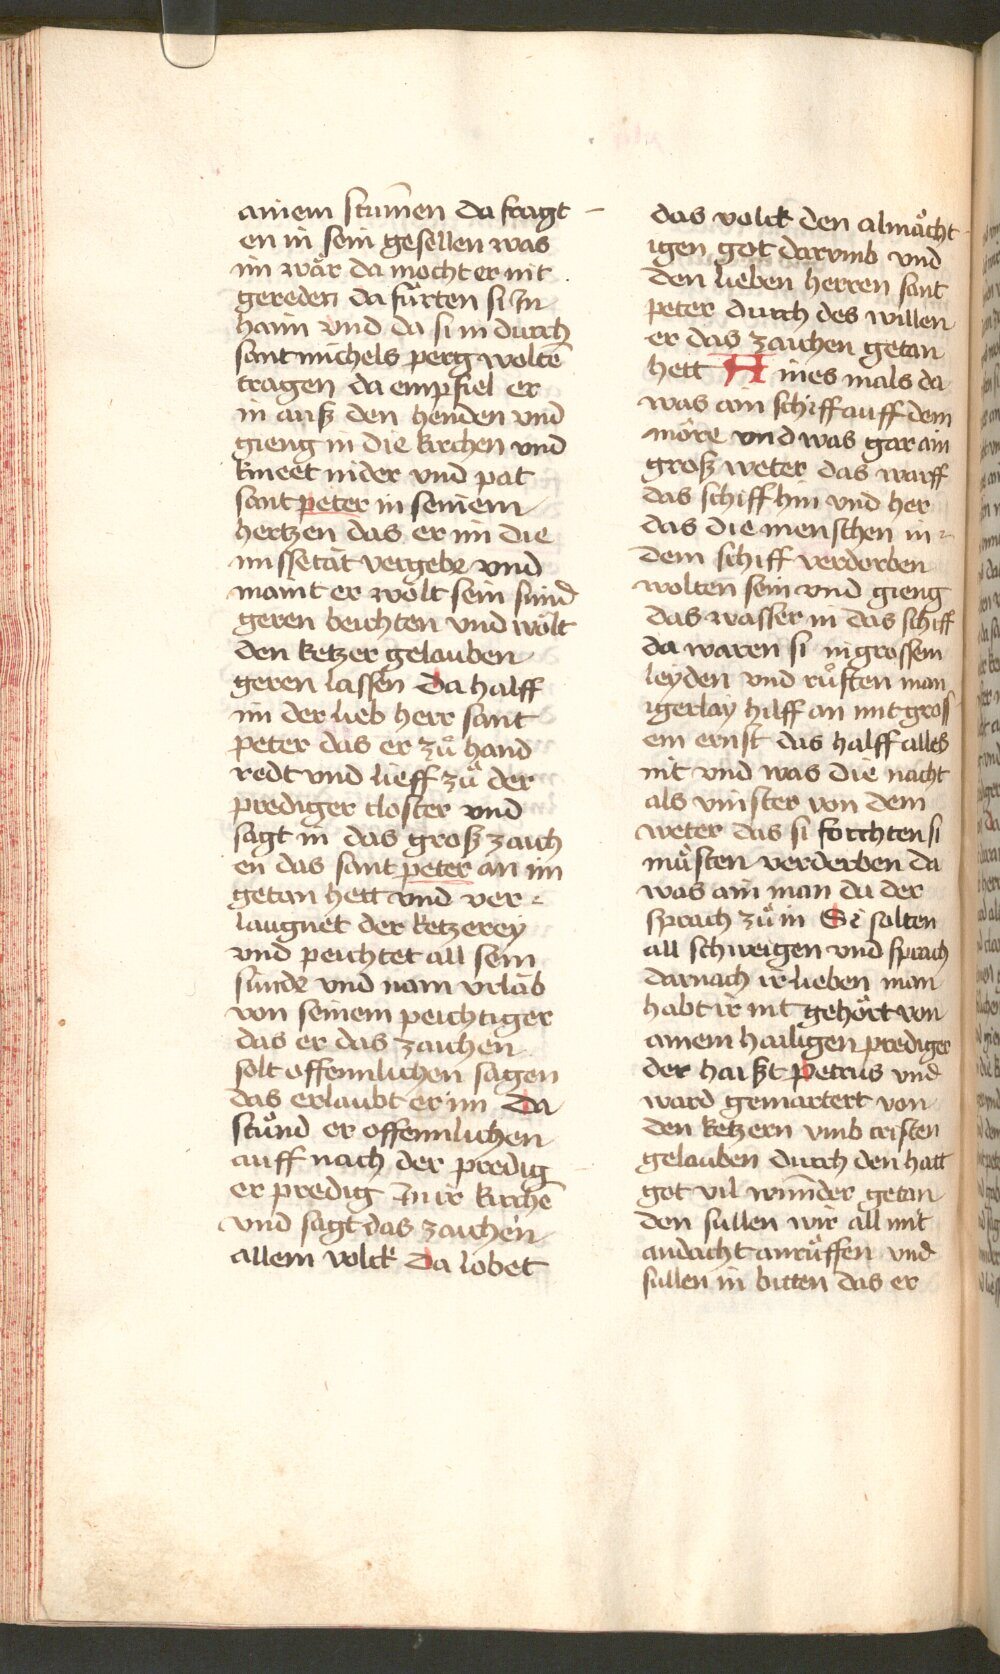 ainem stum̄en da fragt
en in sein gesellen was
im wår da mocht er nit
gereden da fürten si In
haim vnd da si in durch
sant michels perg woltē
tragen da empfiel er
in auß den henden vnd
gieng in die kirchen vnd
kineet nider vnd pat
sant peter in seinem
hertzen das er im die
missetät vergebe vnd
maint er wölt sein sünd
geren beichten vnd wölt
den ketzer gelauben
geren lassen Da halff
im der lieb herr sant
peter das er zů hand
redt vnd lieff zů der
prediger closter vnd
sagt in das groß zaich
en das sant peter an im
getan hett vnd ver-
laugnet der ketzerey
vnd peichtet all sein
sünde vnd nam vrlab
von seinem peichtiger
das er das zaichen
solt offennlichen sagen
das erlaubt er im Da
stůnd er offennlichen
auff nach der predig
er predig In ir kirchē
vnd sagt das zaichen
allem volck Da lobet
das volck den almåcht
igen got darvmb vnd
den lieben herren sant
peter durch des willen
er das zaichen getan
hett Hines mals da
was ain schiff auff dem
möre vnd was gar ain
groß weter das warff
das schiff hin vnd her
das die menschen in-
dem schiff verdorben
wolten sein vnd gieng
das wasser in das schiff
da waren si in grossem
leyden vnd růften man
igerlay hilff an mit gross
em ernst das halff alles
nit vnd was die nacht
als vinster von dem
weter das si forchten si
můsten verderben da
was ain man da der
sprach zů in Si solten
all schweigen vnd sprach
darnach ir lieben man
habt ir nit gehört von
ainem hailigen prediger
der haißt petrus vnd
ward gemartert von
den ketzern vmb cristen
gelauben durch den hatt
got vil wunnder getan
den sullen wir all mit
andacht anrůffen vnd
sullen in bitten das er